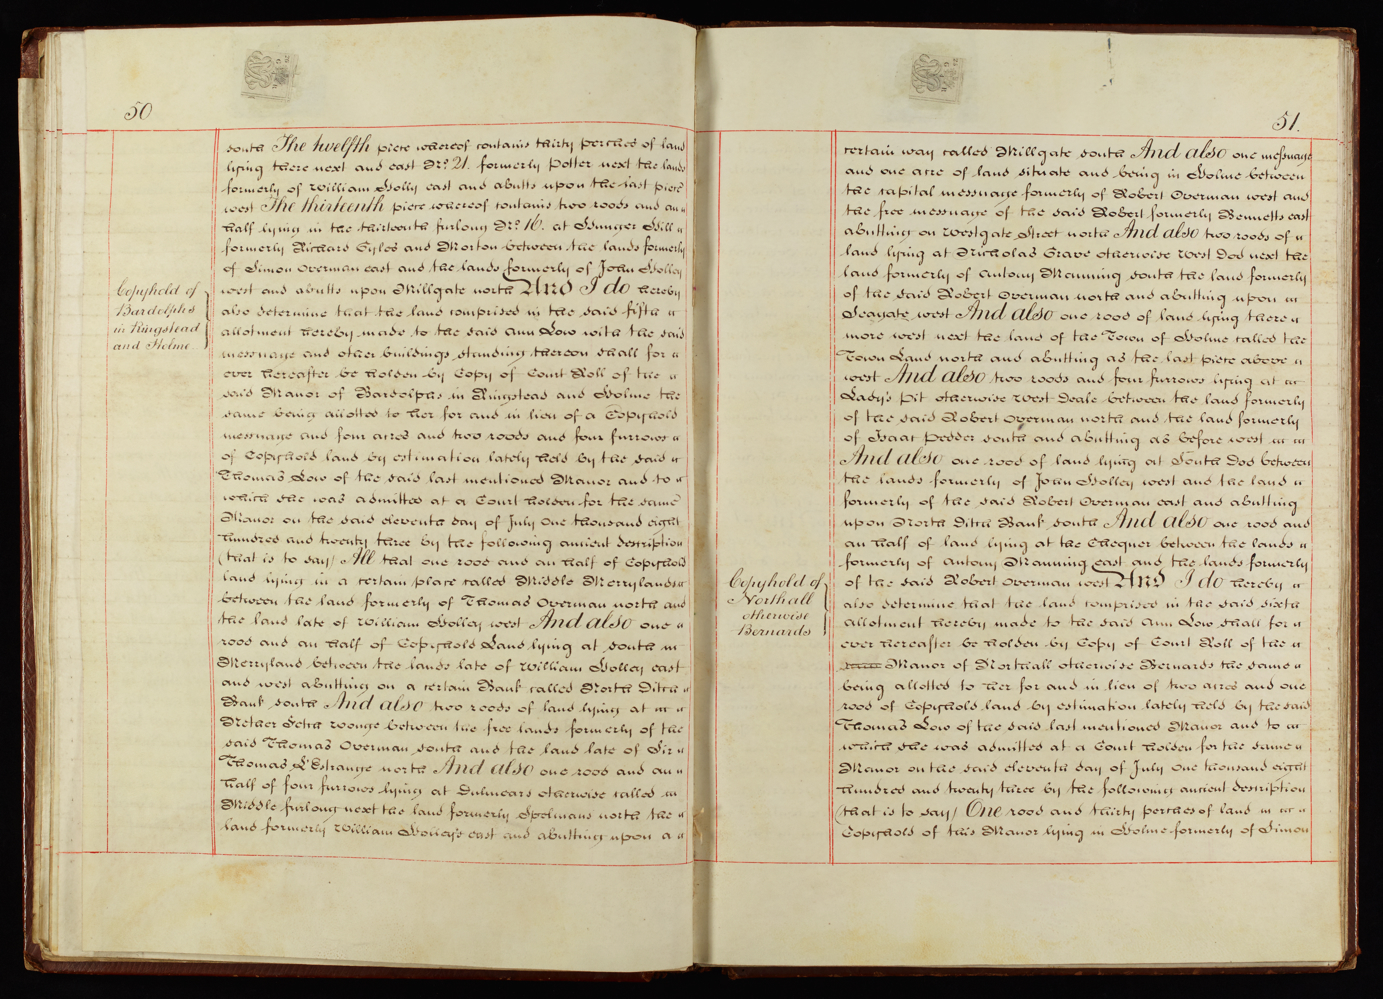 50
south The twelfth piece whereof contains thirty perches of land
lying there next and east No. 21. formerly Potter next the lands
formerly of William Holly east and abutts upon the last piece
west The thirteenth piece whereof contains two roods and an
half lying in the thirteenth furlong No. 16. at Hunger Hill
formerly Richard Gyles and Morton between the lands formerly
of Simon Overman east and the lands formerly of John Holley
west and abutts upon Millgate north And I do hereby
also determine that the land comprised in the said fifth
allotment hereby made to the said Ann Low with the said
messuage and other buildings standing thereon shall for
ever hereafter be holden by Copy of Court Roll of the
said Manor of Bardolphs in Ringstead and Holme the
same being allotted to her for and in lieu of a Copyhold
messuage and four acres and two roods and four furrows
of Copyhold land by estimation lately held by the said
Thomas Low of the said last mentioned Manor and to
which she was admitted at a Court holden for the same
Manor on the said eleventh day of July One thousand eight
hundred and twenty three by the following ancient description
(that is to say) All that one rood and an half of Copyhold
land lying in a certain place called Middle Merrylands
between the land formerly of Thomas Overman north and
the land late of William Holley west And also one
rood and an half of Copyhold Land lying at south in
Merryland between the lands late of William Holley east
and west abutting on a certain Bank called North Ditch
Bank south And also two roods of land lying at
Nether Fetch woonge between the free lands formerly of the
said Thomas Overman south and the land late of Sir
Thomas L'Estrange north And also one rood and an
half of four furrows lying at Dulmears otherwise called
Middle furlong next the land formerly Spelmans north the
land formerly William Holley's east and abutting upon a
Copyhold of
Bardolphs
in Ringstead
and Holme
51.
certain way called Millgate south And also one messuage
and one acre of land situate and being in Holme between
the capital messuage formerly of Robert Overman west and
the free messuage of the said Robert formerly Bennetts east
abutting on Westgate Street north And also two roods of
land lying at Nicholas Grave otherwise West Dod next the
land formerly of Antony Manning south the land formerly
of the said Robert Overman north and abutting upon
Seagate west And also one rood of land lying there
more west next the land of the Town of Holme called the
Town Land north and abutting as the last piece above
west And also two roods and four furrows lying at
Lady's Pit otherwise West Deale between the land formerly
of the said Robert Overman north and the land formerly
of Isaac Pedder south and abutting as before west
And also one rood of land lying at South Dod between
the lands formerly of John Holley west and the land
formerly of the said Robert Overman east and abutting
upon North Ditch Bank south And also one rood and
an half of land lying at the Chequer between the lands
formerly of Antony Manning east and the lands formerly
of the said Robert Overman west And I do hereby
also determine that the land comprised in the said sixth
allotment hereby made to the said Ann Low shall for
ever hereafter be holden by Copy of Court Roll of the
Manor of Northall otherwise Bernards the same
being allotted to her for and in lieu of two acres and one
rood of Copyhold land by estimation lately held by the said
Thomas Low of the said last mentioned Manor and to
which she was admitted at a Court holden for the same
Manor on the said eleventh day of July One thousand eight
hundred and twenty three by the following ancient description
(that is to say) One rood and thirty perches of land in
Copyhold of this Manor lying in Holme formerly of Simon
Copyhold of
Northall
otherwise
Bernards